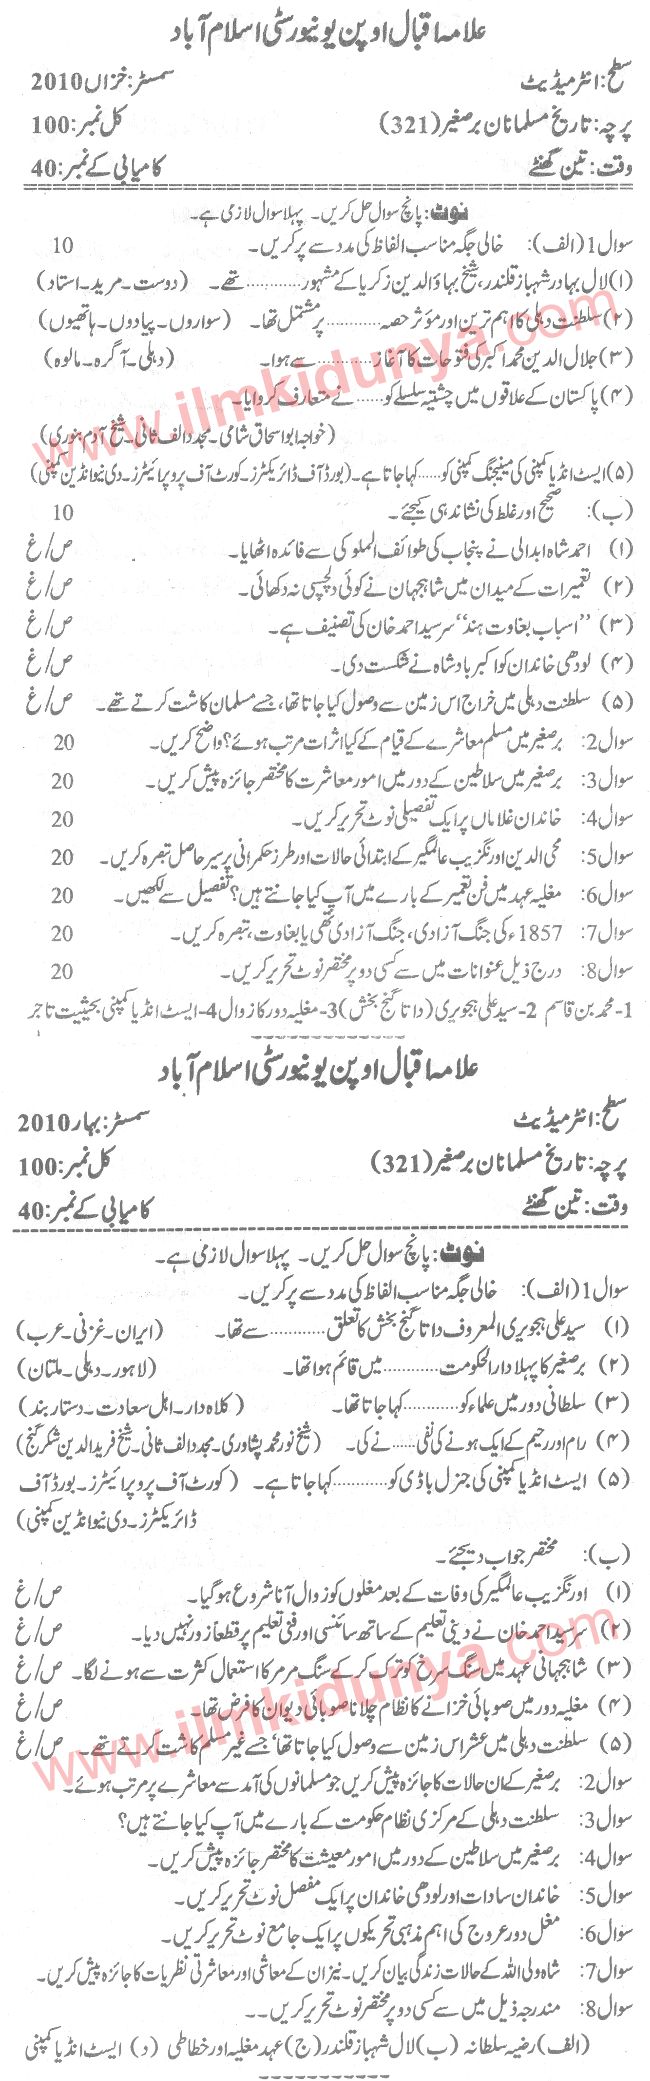 علامہ اقبال اوپن یونیورسٹی اسلام آباد
سطح: انٹرمیڈیٹ سمسٹر: خزاں 2010
پرچہ: تاریخ مسلمانان برصغیر (321) کل نمبر: 100
وقت: تین گھنٹے کامیابی کے نمبر: 40
نوٹ: پانچ سوال حل کریں۔ پہلا سوال لازمی ہے۔
سوال 1 (الف): خالی جگہ مناسب الفاظ کی مدد سے پر کریں۔ 10
(۱) لال بہادر شہباز قلندر، شیخ بہاؤالدین زکریا کے مشہور............تھے۔ (دوست۔ مرید۔ استاد)
(۲) سلطنت دہلی کا اہم ترین اور مؤثر حصہ ............ پر مشتمل تھا۔ (سواروں۔ پیادوں۔ ہاتھیوں)
(۳) جلال الدین محمد اکبر کی فتوحات کا آغاز ............ سے ہوا۔ (دہلی۔ آگرہ۔ مالوہ)
(۴) پاکستان کے علاقوں میں چشتیہ سلسلے کو...... نے متعارف کروایا۔
(خواجہ ابو اسحاق شامی۔ مجدد الف ثانی۔ شیخ آدم بنوری)
(۵) ایسٹ انڈیا کمپنی کی مینیجنگ کمپنی کو...... کہا جاتا ہے۔ (بورڈ آف ڈائریکٹرز۔ کورٹ آف پروپرائیٹرز۔ دی نیو انڈین کمپنی)
(ب): صحیح اور غلط کی نشاندہی کیجئے۔ 10
(۱) احمد شاہ ابدالی نے پنجاب کی طوائف الملوکی سے فائدہ اٹھایا۔ ص/غ
(۲) تعمیرات کے میدان میں شاہجہان نے کوئی دلچسپی نہ دکھائی۔ ص/غ
(۳) "اسباب بغاوت ہند" سرسید احمد خان کی تصنیف ہے۔ ص/غ
(۴) لودھی خاندان کو اکبر بادشاہ نے شکست دی۔ ص/غ
(۵) سلطنت دہلی میں خراج اس زمین سے وصول کیا جاتا تھا، جسے مسلمان کاشت کرتے تھے۔ ص/غ
سوال 2: برصغیر میں مسلم معاشرے کے قیام کے کیا اثرات مرتب ہوئے؟ واضح کریں۔ 20
سوال 3: برصغیر میں سلاطین کے دور میں امور معاشرت کا مختصر جائزہ پیش کریں۔ 20
سوال 4: خاندان غلاماں پر ایک تفصیلی نوٹ تحریر کریں۔ 20
سوال 5: محی الدین اورنگزیب عالمگیر کے ابتدائی حالات اور طرز حکمرانی پر سیر حاصل تبصرہ کریں۔ 20
سوال 6: مغلیہ عہد میں فن تعمیر کے بارے میں آپ کیا جانتے ہیں؟ تفصیل سے لکھیں۔ 20
سوال 7: 1857ء کی جنگ آزادی، جنگ آزادی تھی یا بغاوت، تبصرہ کریں۔ 20
سوال 8: درج ذیل عنوانات میں سے کسی دو پر مختصر نوٹ تحریر کریں۔ 20
1- محمد بن قاسم 2- سید علی ہجویری (داتا گنج بخش) 3- مغلیہ دور کا زوال 4- ایسٹ انڈیا کمپنی بحیثیت تاجر
علامہ اقبال اوپن یونیورسٹی اسلام آباد
سطح: انٹرمیڈیٹ سمسٹر: بہار 2010
پرچہ: تاریخ مسلمانان برصغیر (321) کل نمبر: 100
وقت: تین گھنٹے کامیابی کے نمبر: 40
نوٹ: پانچ سوال حل کریں۔ پہلا سوال لازمی ہے۔
سوال 1 (الف): خالی جگہ مناسب الفاظ کی مدد سے پر کریں۔
(۱) سید علی ہجویری المعروف داتا گنج بخش کا تعلق ............ سے تھا۔ (ایران۔ غزنی۔ عرب)
(۲) برصغیر کا پہلا دارالحکومت ............ میں قائم ہوا تھا۔ (لاہور۔ دہلی۔ ملتان)
(۳) سلطانی دور میں علماء کو............ کہا جاتا تھا۔ (کلاہ دار۔ اہل سعادت۔ دستار بند)
(۴) رام اور رحیم کے ایک ہونے کی نفی...... نے کی۔ (شیخ نور محمد پشاوری۔ مجدد الف ثانی۔ شیخ فرید الدین شکر گنج)
(۵) ایسٹ انڈیا کمپنی کی جنرل باڈی کو............ کہا جاتا ہے۔ (کورٹ آف پروپرائیٹرز۔ بورڈ آف
ڈائریکٹرز۔ دی نیو انڈین کمپنی)
(ب): مختصر جواب دیجئے۔
(۱) اورنگزیب عالمگیر کی وفات کے بعد مغلوں کو زوال آنا شروع ہو گیا۔ ص/غ
(۲) سرسید احمد خان نے دینی تعلیم کے ساتھ سائنسی اور فنی تعلیم پر قطعاً زور نہیں دیا۔ ص/غ
(۳) شاہجہانی عہد میں سنگ سرخ کو ترک کر کے سنگ مرمر کا استعمال کثرت سے ہونے لگا۔ ص/غ
(۴) مغلیہ دور میں صوبائی خزانے کا نظام چلانا صوبائی دیوان کا فرض تھا۔ ص/غ
(۵) سلطنت دہلی میں عشر اس زمین سے وصول کیا جاتا تھا، جسے غیر مسلم کاشت کرتے تھے۔ ص/غ
سوال 2: برصغیر کے ان حالات کا جائزہ پیش کریں جو مسلمانوں کی آمد سے معاشرے پر مرتب ہوئے۔
سوال 3: سلطنت دہلی کے مرکزی نظام حکومت کے بارے میں آپ کیا جانتے ہیں؟
سوال 4: برصغیر میں سلاطین کے دور میں امور معیشت کا مختصر جائزہ پیش کریں۔
سوال 5: خاندان سادات اور لودھی خاندان پر ایک مفصل نوٹ تحریر کریں۔
سوال 6: مغل دور عروج کی اہم مذہبی تحریکوں پر ایک جامع نوٹ تحریر کریں۔
سوال 7: شاہ ولی اللہ کے حالات زندگی بیان کریں۔ نیز ان کے معاشی اور معاشرتی نظریات کا جائزہ پیش کریں۔
سوال 8: مندرجہ ذیل میں سے کسی دو پر مختصر نوٹ تحریر کریں۔۔
(الف) رضیہ سلطانہ (ب) لال شہباز قلندر (ج) عہد مغلیہ اور خطاطی (د) ایسٹ انڈیا کمپنی
www.ilmkidunya.com
www.ilmkidunya.com